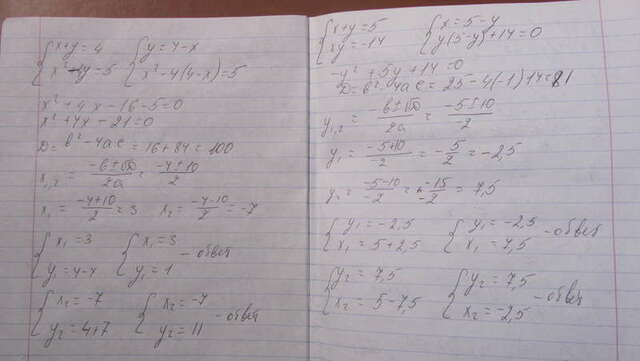 {x+y=4 {y=4-x
x²-4y=5 x²-4(4-x)=5
x²+4x-16-5=0
x²+4x-21=0
D=b²-4ac=16+84=100
x₁,₂=(-b±√D)/2a=(-4±10)/2
x₁=(-4+10)/2=3 x₂=(-4-10)/2=-7
{x₁=3 {x₁=3
y=4-x y₁=1 - ответ
{x₂=-7 {x₂=-7
y₂=4+7 y₂=11 - ответ
{x+y=5 {x=5-y
xy=-14 y(5-y)+14=0
-y²+5y+14=0
D=b²-4ac=25-4(-1)14=81
y₁,₂=(-b±√D)/2a=(-5±10)/-2
y₁=(-5+10)/-2=-5/2=-2,5
y₂=(-5-10)/-2=-15/-2=7,5
{y₁=-2,5 {y₁=-2,5
x₁=5+2,5 x₁=7,5 - ответ
{y₂=7,5 {y₂=7,5
x₂=5-7,5 x₂=-2,5 - ответ